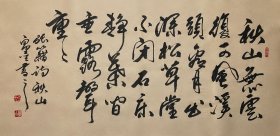 秋山無雲
復無風溪
頭看月出
深松草堂
不閉石床
靜葉間
墜露聲
重重
張籍詩秋山